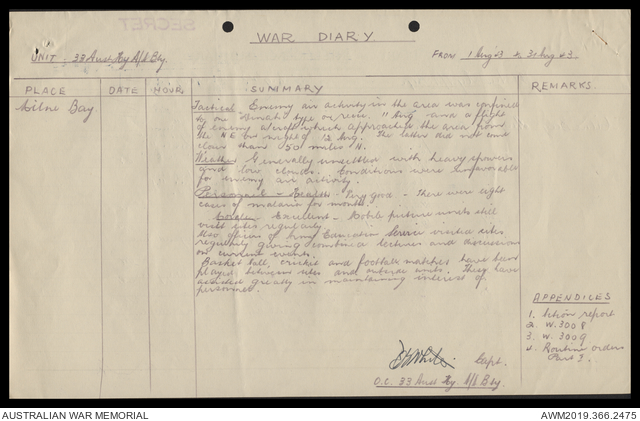 SECRET
WAR DIARY
UNIT: 33 Aust. Hy A/A Bty.
FROM 1 Aug 43 to 31 Aug 43.
PLACE DATE HOUR SUMMARY REMARKS
Milne Bay
Tactical Enemy air activity in the area was confined
to one "Dinah" type on recce. 11 Aug and a flight
of enemy aircraft which approached the area from
the N.E. on night of 12 Aug. The latter did not come
closer than 50 miles N.
Weather Generally unsettled with heavy showers
and low clouds. Conditions were unfavorable
for enemy air activity.
Personnel - Health - Very good - There were eight
cases of malaria for month.
Excellent - Mobile picture units still
visit sites regularly.
Also officers of Army Education Service visited sites
regularly giving combined lectures and discussions
on current events.
Basket ball, cricket and football matches have been
played between sites and outside units. They have
assisted greatly in maintaining interest of
personnel.
APPENDICES
1. Action report
2. W. 3008
3. W. 3009
4. Routine orders
Part 3.
White Capt.
O.C. 33 Aust Hy. A/A Bty.
AUSTRALIAN WAR MEMORIAL
AWM2019.366.2475